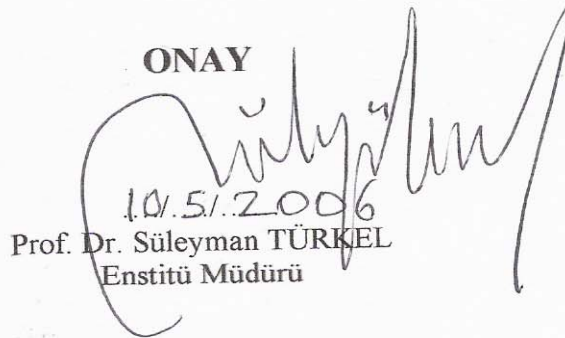 ONAY
10/.5/.2006
Prof. Dr. Süleyman TÜRKEL
Enstitü Müdürü